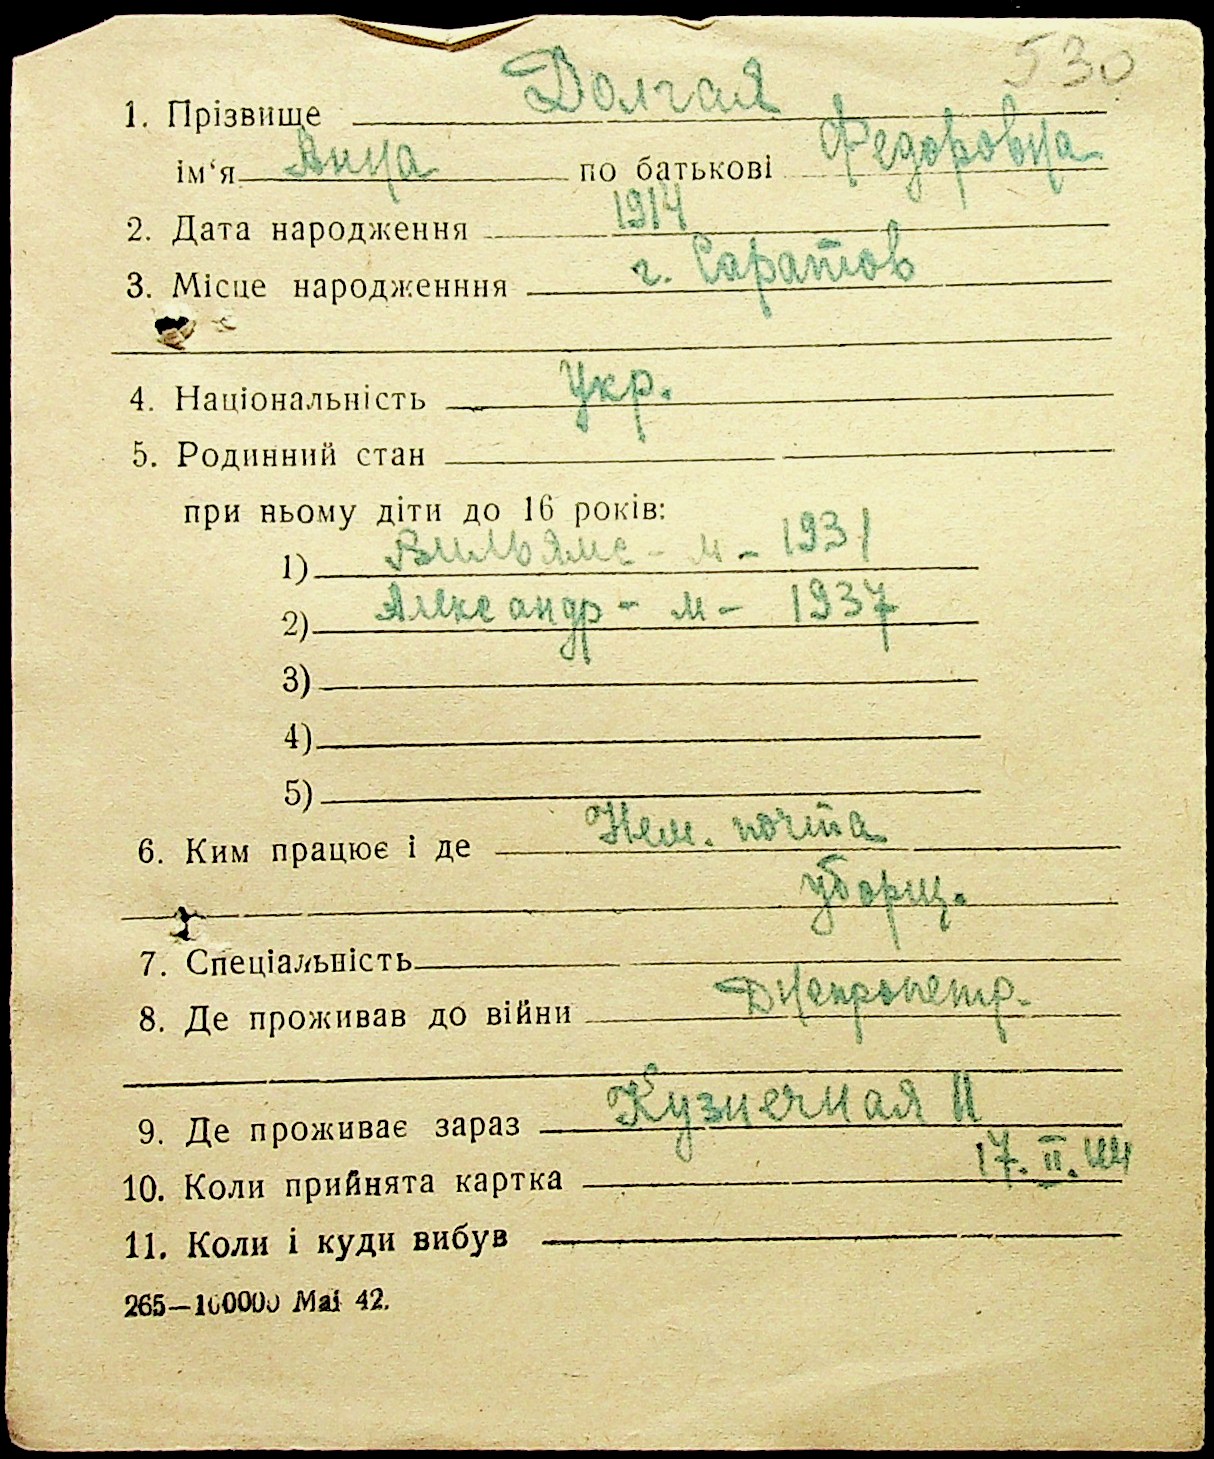 530
1. Прізвище Долгая
ім'я Анна по батькові Федоровна
2. Дата народження 1914
3. Місце народженння г. Саратов
4. Національність Укр.
5. Родинний стан
при ньому діти до 16 років:
1) Вильямс - м - 1931
2) Александр - м - 1937
3)
4)
5)
6. Ким працює і де Нем. почта
уборщ.
7. Спеціальність
8. Де проживав до війни Днепропетр.
9. Де проживає зараз Кузнечная 11
10. Коли прийнята картка 17.II.44
11. Коли і куди вибув
265—100000 Mai 42.